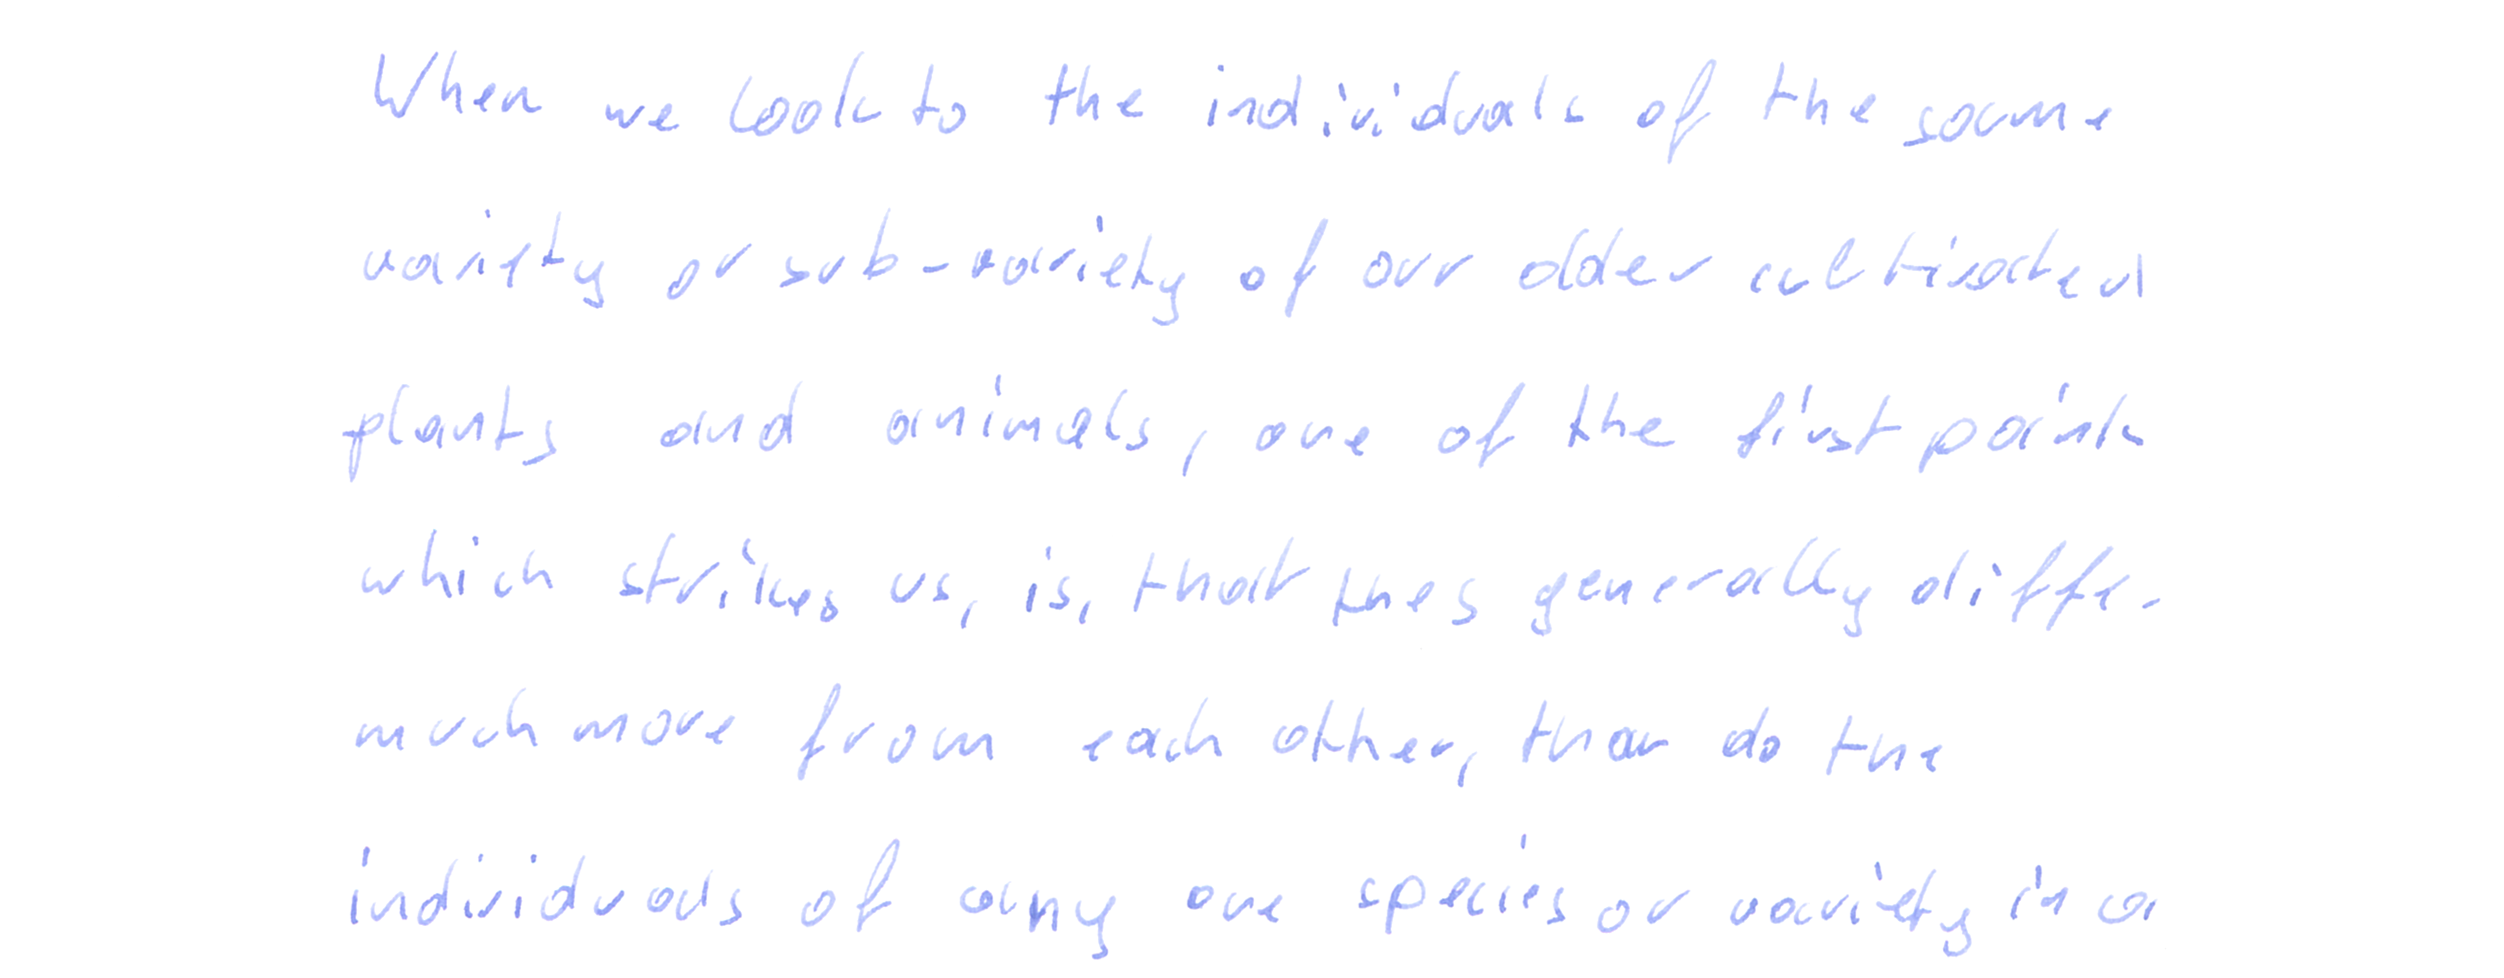 When we look to the individuals of the same
varity or sub-variety of our older cultivated
plants and animals, one of the first points
which strikes us, is, that they generally diffe-
much more from each other, than do the
individuals of any one species or variety in a